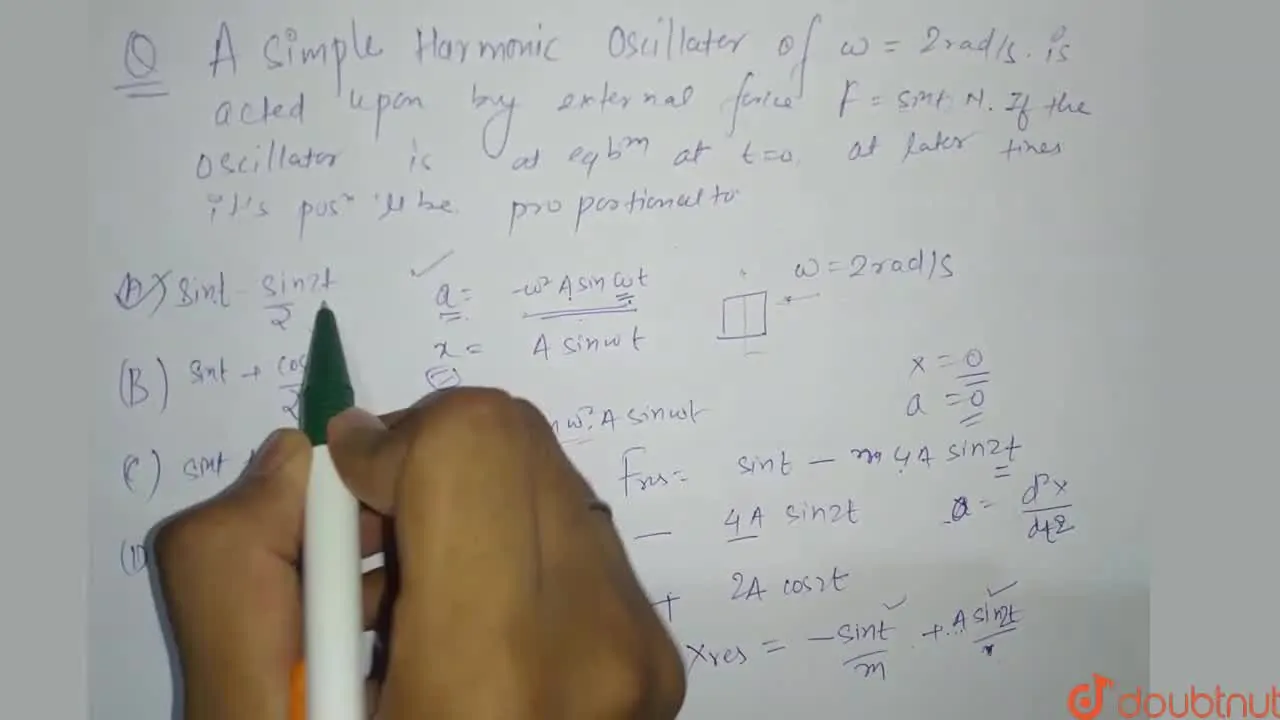 Q A Simple Harmonic Oscillater of ω = 2rad/s. is
acted upon by external force F = sint N. If the
Oscillator is at eqbm at t=0. at later times
it's posn 'll be proportional to
(A) sint - sin2t/2
(B) sint + cos /2
(C) sint
(D)
a = -ω² A sin ωt
x = A sinωt
ω = 2rad/s
x = 0
a = 0
ω² A sinωt
Fres = sint — m 4A sin2t
— 4A sin2t
a = d²x/dt2
+ 2A cos2t
xres = -sint/m + A sin2t/
doubtnut